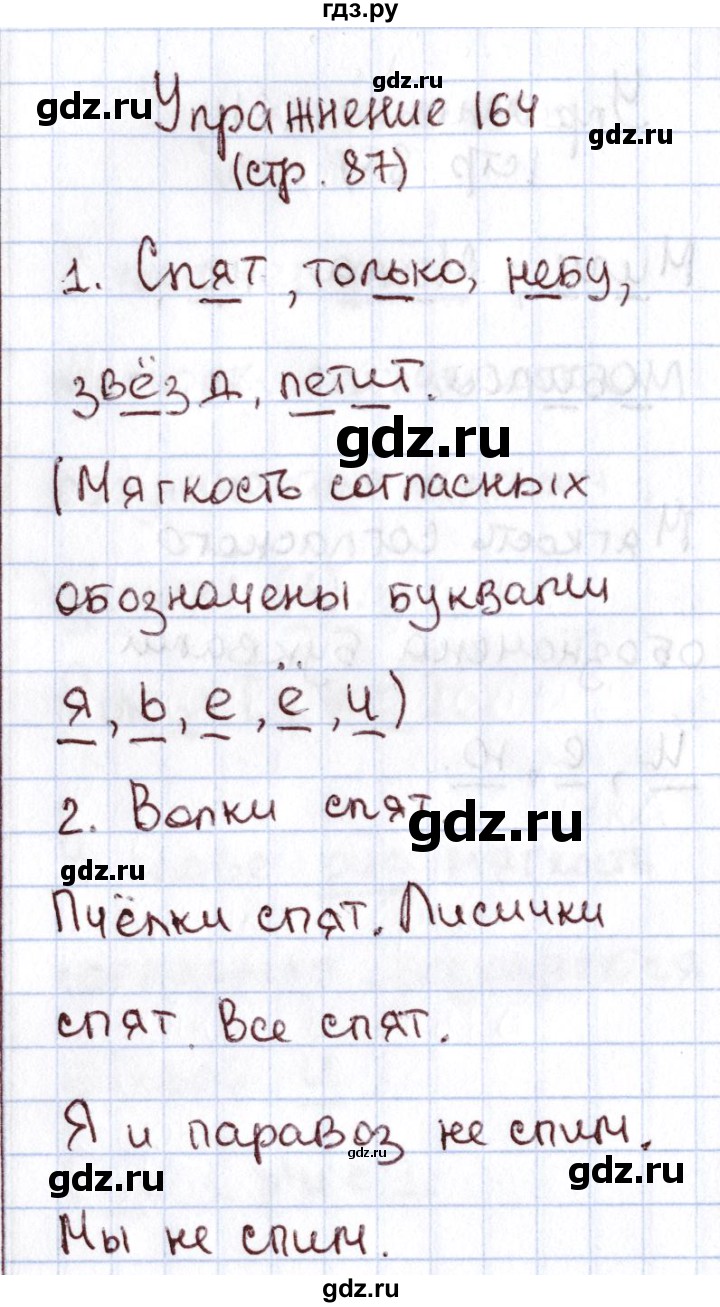 гдз.ру
gdz.ru
gdz.ru
Упражнение 164
gdz.ru
(стр. 87)
1. Спят, только, небу,
звёзд, летит.
gdz.ru
(Мягкость согласных
обозначены буквами
я, ь, е, ё, и)
2. Волки спят
gdz.ru
gdz.ru
Пчёлки спят. Лисички
спят. Все спят.
Я и паравоз не спим.
gdz.ru
gdz.ru
gdz.ru
Мы не спим.
gdz.ru